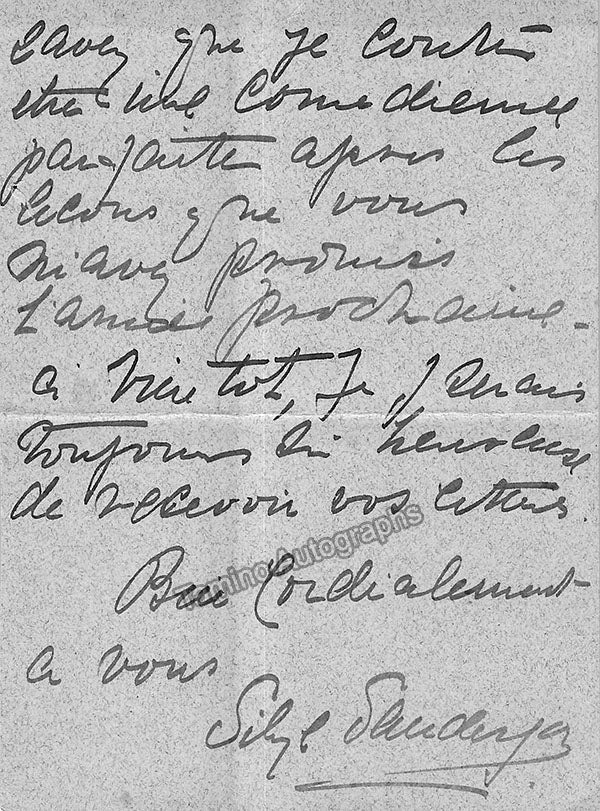 savez que je conte
être une comedienne
parfaite apres les
lecons que vous
m'avez promis
l'année prochaine -
a bientot, Je serais
toujours si heureuse
de recevoir vos lettres.
Bien Cordialement
a vous
Sibyl Sanderson
Tamino Autographs